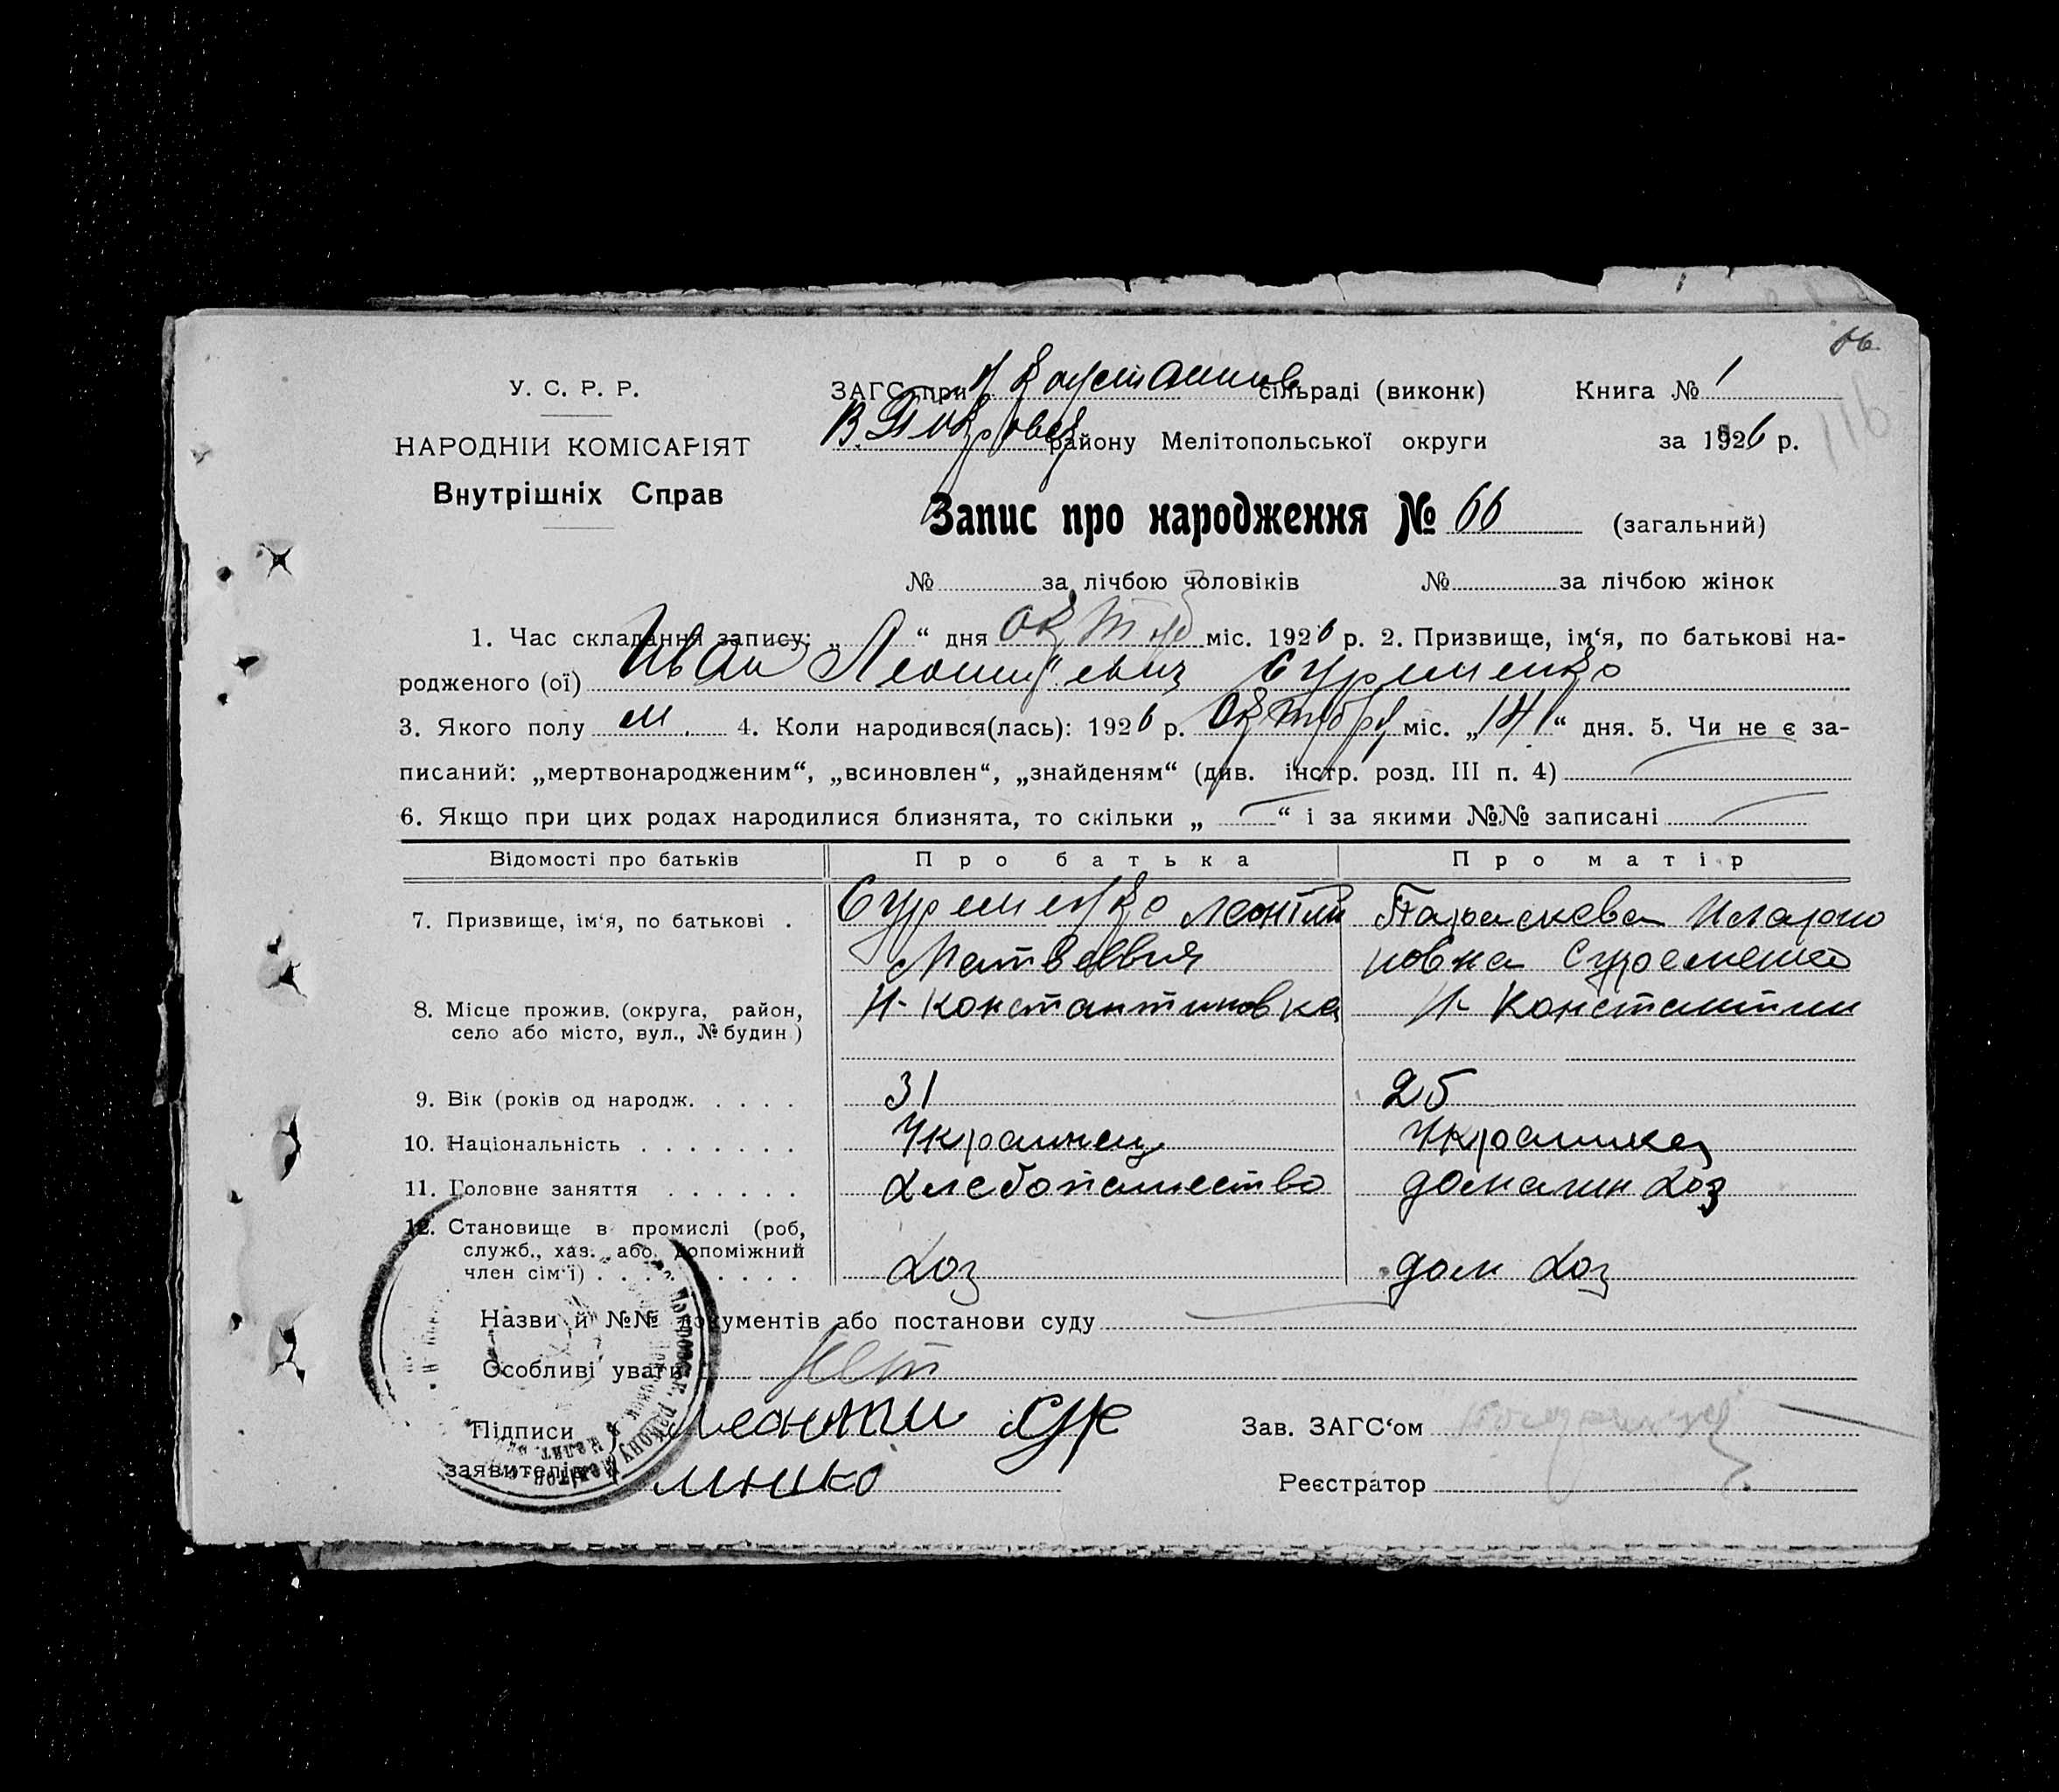 66
У. С. Р. Р.
ЗАГС при сільраді (виконк)
Книга № 1
116
НАРОДНІЙ КОМІСАРІЯТ
В. Покровск району Мелітопольської округи
за 1926 р.
Внутрішніх Справ
Запис про народження № 66 (загальний)
№ за лічбою чоловіків № за лічбою жінок
1. Час складання запису: „ “ дня міс. 1926 р. 2. Призвище, ім‘я, по батькові на-
родженого (ої) Иван Леонтьевич Суременко
3. Якого полу м. 4. Коли народився(лась): 1926 р. Октября міс. „14“ дня. 5. Чи не є за-
писаний: „мертвонародженим“, „всиновлен“, „знайденям“ (див. інстр. розд. III п. 4)
6. Якщо при цих родах народилися близнята, то скільки „ “ і за якими №№ записані
Відомості про батьків Про батька Про матір
7. Призвище, ім‘я, по батькові . Суременко Леонтий Параскева Иларио
Матвеевич новна Суременко
8. Місце прожив. (округа, район, Н- Константиновка Н- Константин
село або місто, вул., № будин.)
9. Вік (років од народж. . . . . 31 25
10. Національність . . . . . . . Украинец Украинка
11. Головне заняття . . . . . . Хлебопашество домашн хоз
12. Становище в промислі (роб,
служб., хаз. або допоміжний
член сім‘ї) . . . . . . . . . хоз дом хоз
Назви й №№ документів або постанови суду
Особливі уваги Нет
Підписи Леонти Суре
Зав. ЗАГС‘ом
заявителів менко
Реєстратор